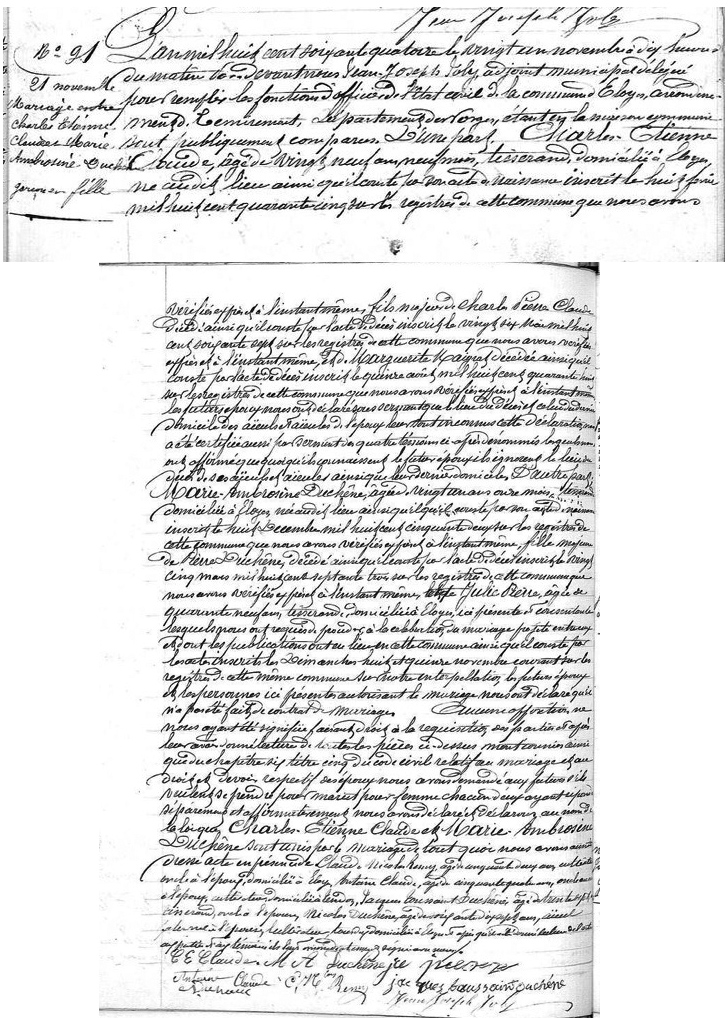 Jean Joseph Joly
N° 91
21 novembre
Mariage entre
Charles Etienne
Claude & Marie
Ambrosine Duchêne
garçon en fille
L'an mil huit cent soixante quatorze le vingt un novembre à dix heures
du matin Par devant nous Jean Joseph Joly, adjoint municipal délégué
pour remplir les fonctions d'officier de l'Etat civil de la commune d'Eloyes, arrondisse-
ment de Remiremont, département des Vosges, étant en la maison commune
sont publiquement comparus. D'une part, Charles Etienne
Claude, âgé de vingt neuf ans, neuf mois, tisserand, domicilié à Eloyes,
né audit lieu ainsi qu'il conste par son acte de naissance inscrit le huit février
mil huit cent quarante cinq sur les registres de cette commune que nous avons
vérifiés exprès à l'instant même, fils majeur de Charles Pierre Claude
décédé ainsi qu'il conste par l'acte de décès inscrit le vingt six mai mil huit
cent soixante sept sur les registres de cette commune que nous avons vérifiés
exprès à l'instant même, et de Marguerite décédée ainsi qu'il
conste par l'acte de décès inscrit le quinze août mil huit cent quarante huit
sur les registres de cette commune que nous avons vérifiés exprès à l'instant même
les futurs époux nous ont déclaré sous serment que le lieu du décès et celui du dernier
domicile des aïeuls et aïeules de l'époux leur sont inconnus cette déclaration
a été certifiée aussi par serment des quatre témoins ci après dénommés lesquels nous
ont affirmé que quoiqu'ils connaissent le futur époux ils ignorent le lieu du
décès de ses aïeuls et aïeules ainsi que leur dernier domicile. D'autre part,
Marie Ambrosine Duchêne, âgée de vingt un ans onze mois,
domiciliée à Eloyes, née audit lieu ainsi qu'il conste par son acte de naissance
inscrit le huit Décembre mil huit cent cinquante deux sur les registres de
cette commune que nous avons vérifiés exprès à l'instant même, fille majeure
de Pierre Duchêne, décédé ainsi qu'il conste par l'acte de décès inscrit le vingt
cinq mars mil huit cent septante trois sur les registres de cette commune que
nous avons vérifiés exprès à l'instant même, et de Julie Pierre, âgée de
quarante neuf ans, tisserand, domiciliée à Eloyes, ici présente et consentante
lesquels nous ont requis de procéder à la célébration du mariage projeté entre eux
et dont les publications ont eu lieu en cette commune ainsi qu'il conste par
les actes inscrits les Dimanches huit et quinze novembre courant sur les
registres de cette même commune sur notre interpellation les futurs époux
et les personnes ici présentes autorisant le mariage nous ont déclaré qu'il
n'a pas été fait de contrat de mariage. Aucune opposition ne
nous ayant été signifiée faisant droit à la réquisition des parties et après
leur avoir donné lecture de toutes les pièces ci-dessus mentionnées ainsi
que du chapitre six titre cinq du code civil relatif au mariage et aux
droits et devoirs respectifs des époux nous avons demandé aux futurs s'ils
veulent se prendre pour mari et pour femme chacun d'eux ayant répondu
séparément et affirmativement nous avons déclaré et déclarons au nom de
la loi que Charles Etienne Claude et Marie Ambrosine
Duchêne sont unis par le mariage de tout quoi nous avons aussitôt
dressé acte en présence de Claude Nicolas Remy, âgé de cinquante deux ans, cultivateur
oncle à l'époux, domicilié à Eloyes, Antoine Claude, âgé de cinquante quatre ans, oncle aussi
à l'époux, cultivateur domicilié à, Jacques Toussaint Duchêne, âgé de trente sept ans
tisserand, oncle à l'épouse, Nicolas Duchêne, âgé de soixante dix sept ans, aïeul
paternel à l'épouse, cultivateur, tous deux domiciliés à Eloyes Et après qu'il a été donné lecture de l'acte
aux parties et aux témoins ils l'ont signé avec nous
C E Claude M A Duchêne Julie pierre
Antoine Claude C. N. Remy jacques toussaint duchêne
N Duchêne Jean Joseph Joly